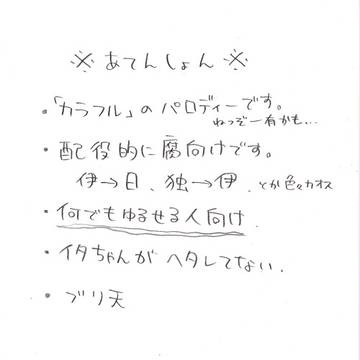 ※ あてんしょん ※
・「カラフル」のパロディーです。
ねつぞー有かも…
・配役的に腐向けです。
伊→日、独→伊、とか色々カオス
・何でもゆるせる人向け
・イタちゃんがヘタレてない.
・ブリ天